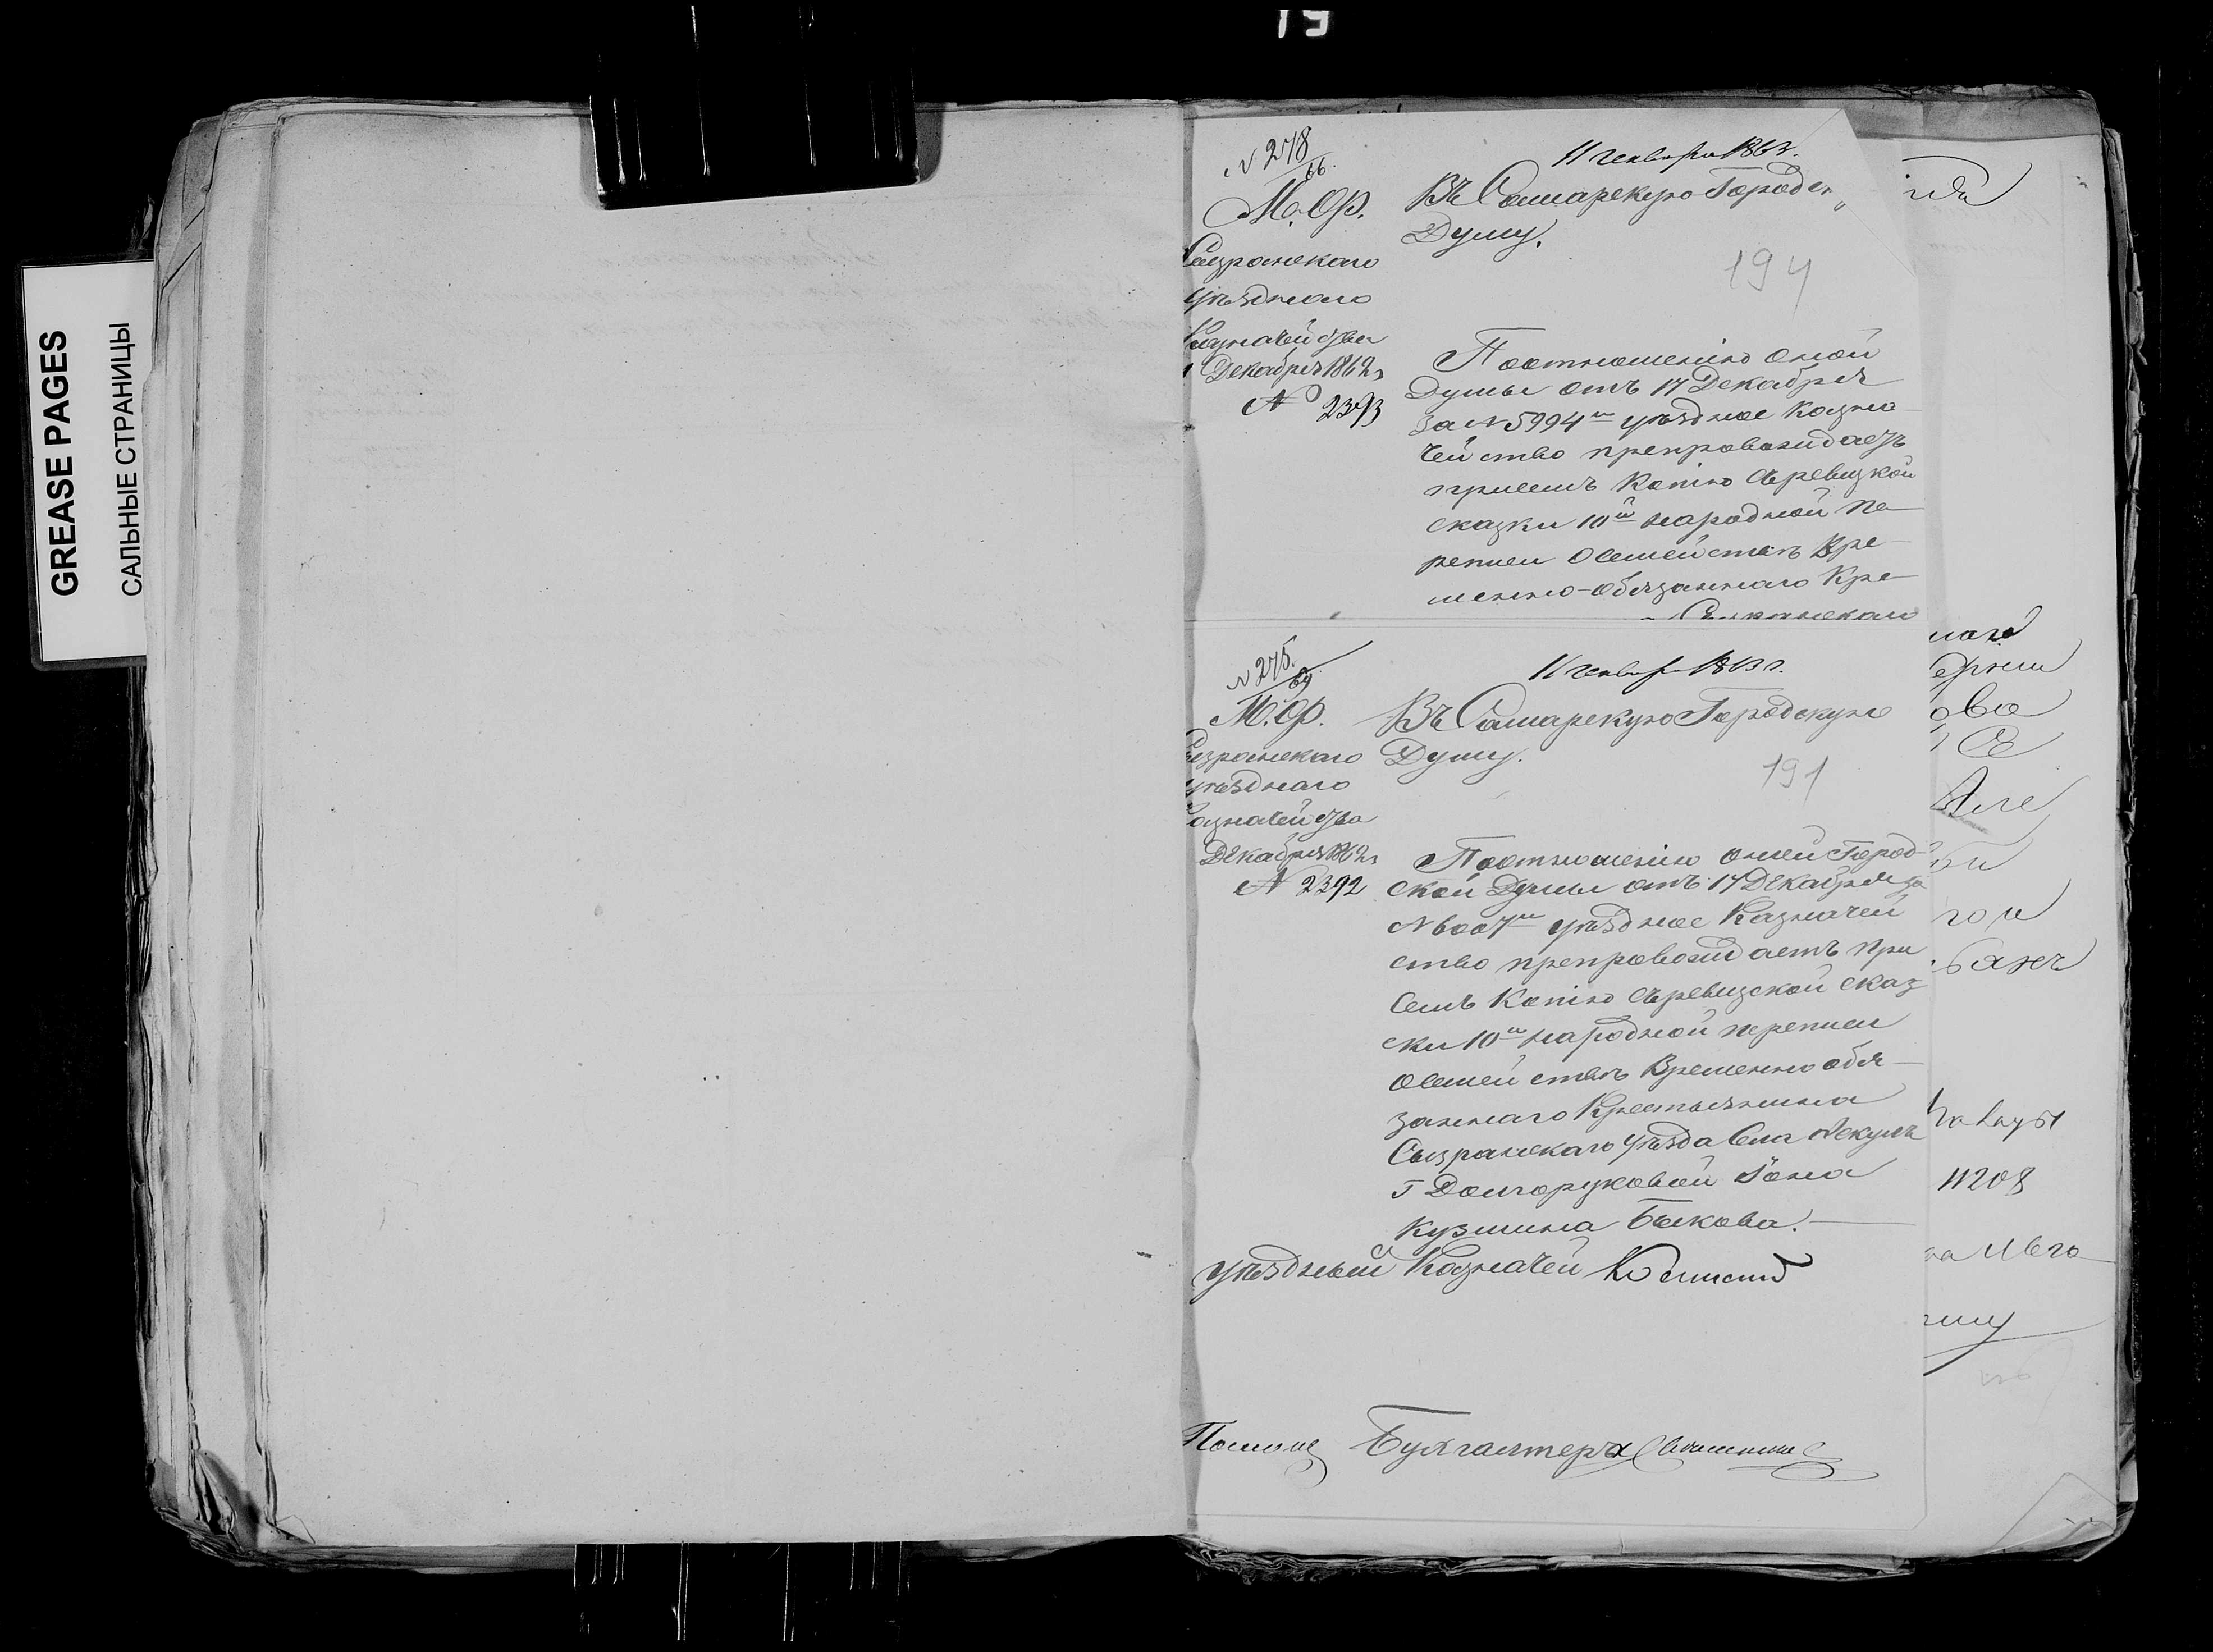 19
GREASE PAGES
САЛЬНЫЕ СТРАНИЦЫ
№ 278/66.
11 генваря 1863.
М. Ф.
Сызранскаго
Уѣзднаго
Казначейства
Декабря 1862 г
№ 2393
Въ Самарскую Городск
Думу.
194
По отношенію оной
Думы отъ 17 Декабря
за № 5994 м уѣздное Казна
чейство препровождаетъ
присемъ Копію съревизкой
сказки 10й народной пе
реписи о семействѣ Вре
менно-обязаннаго Кре
Сызранскаго
№ 275.
64
11 генвар 1863 г.
М. Ф.
Сызранскаго
уѣзднаго
Казначейства
Декабря 1862 г
№ 2392
Въ Самарскую Городскую
Думу.
191
По отношенію оной Город
ской Думы отъ 17 Декабря за
№ 6007 м уѣздное Казначей
ство препровождаетъ при
семъ Копію съревизской сказ
ски 10й народной переписи
о семействѣ Временно обя
заннаго Крестьянина
Сызранскаго Уѣзда Села
Г Долгоруковой
Кузмина Быкова.
Уѣздный Казначей
Бухгалтера
11208